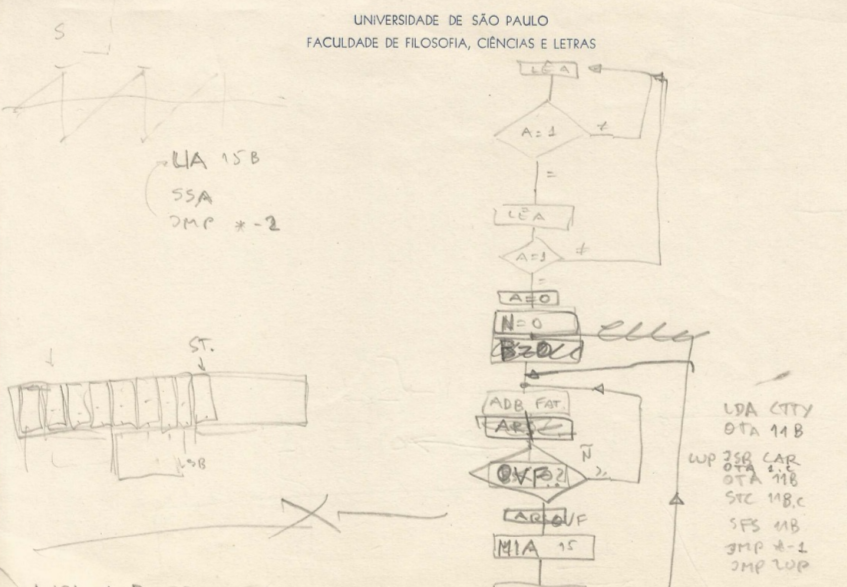 UNIVERSIDADE DE SÃO PAULO
FACULDADE DE FILOSOFIA, CIÊNCIAS E LETRAS
S
LIA 15B
SSA
JMP *-2
LÊ A
A=1
≠
=
LÊ A
A=1
≠
=
A=0
N=0
ST.
ADB FAT.
OVF
Ñ
MIA 15
LDA CTTY
OTA 11B
LUP JSB CAR
OTA 1.C
OTA 11B
STC 11B,C
SFS 11B
JMP *-1
JMP LUP